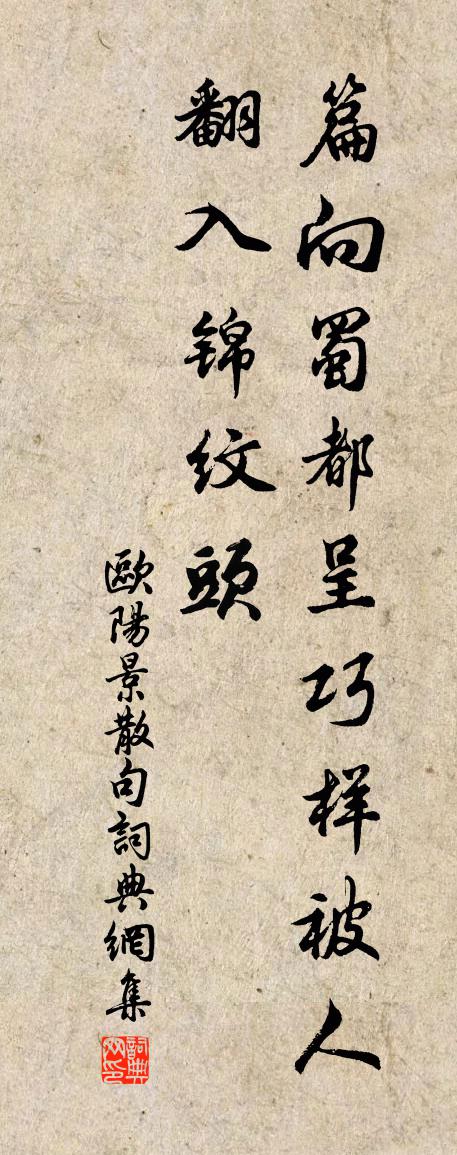 篇向蜀都呈巧样被人
翻入锦纹頭
歐陽景散句詞典網集
詞典网印